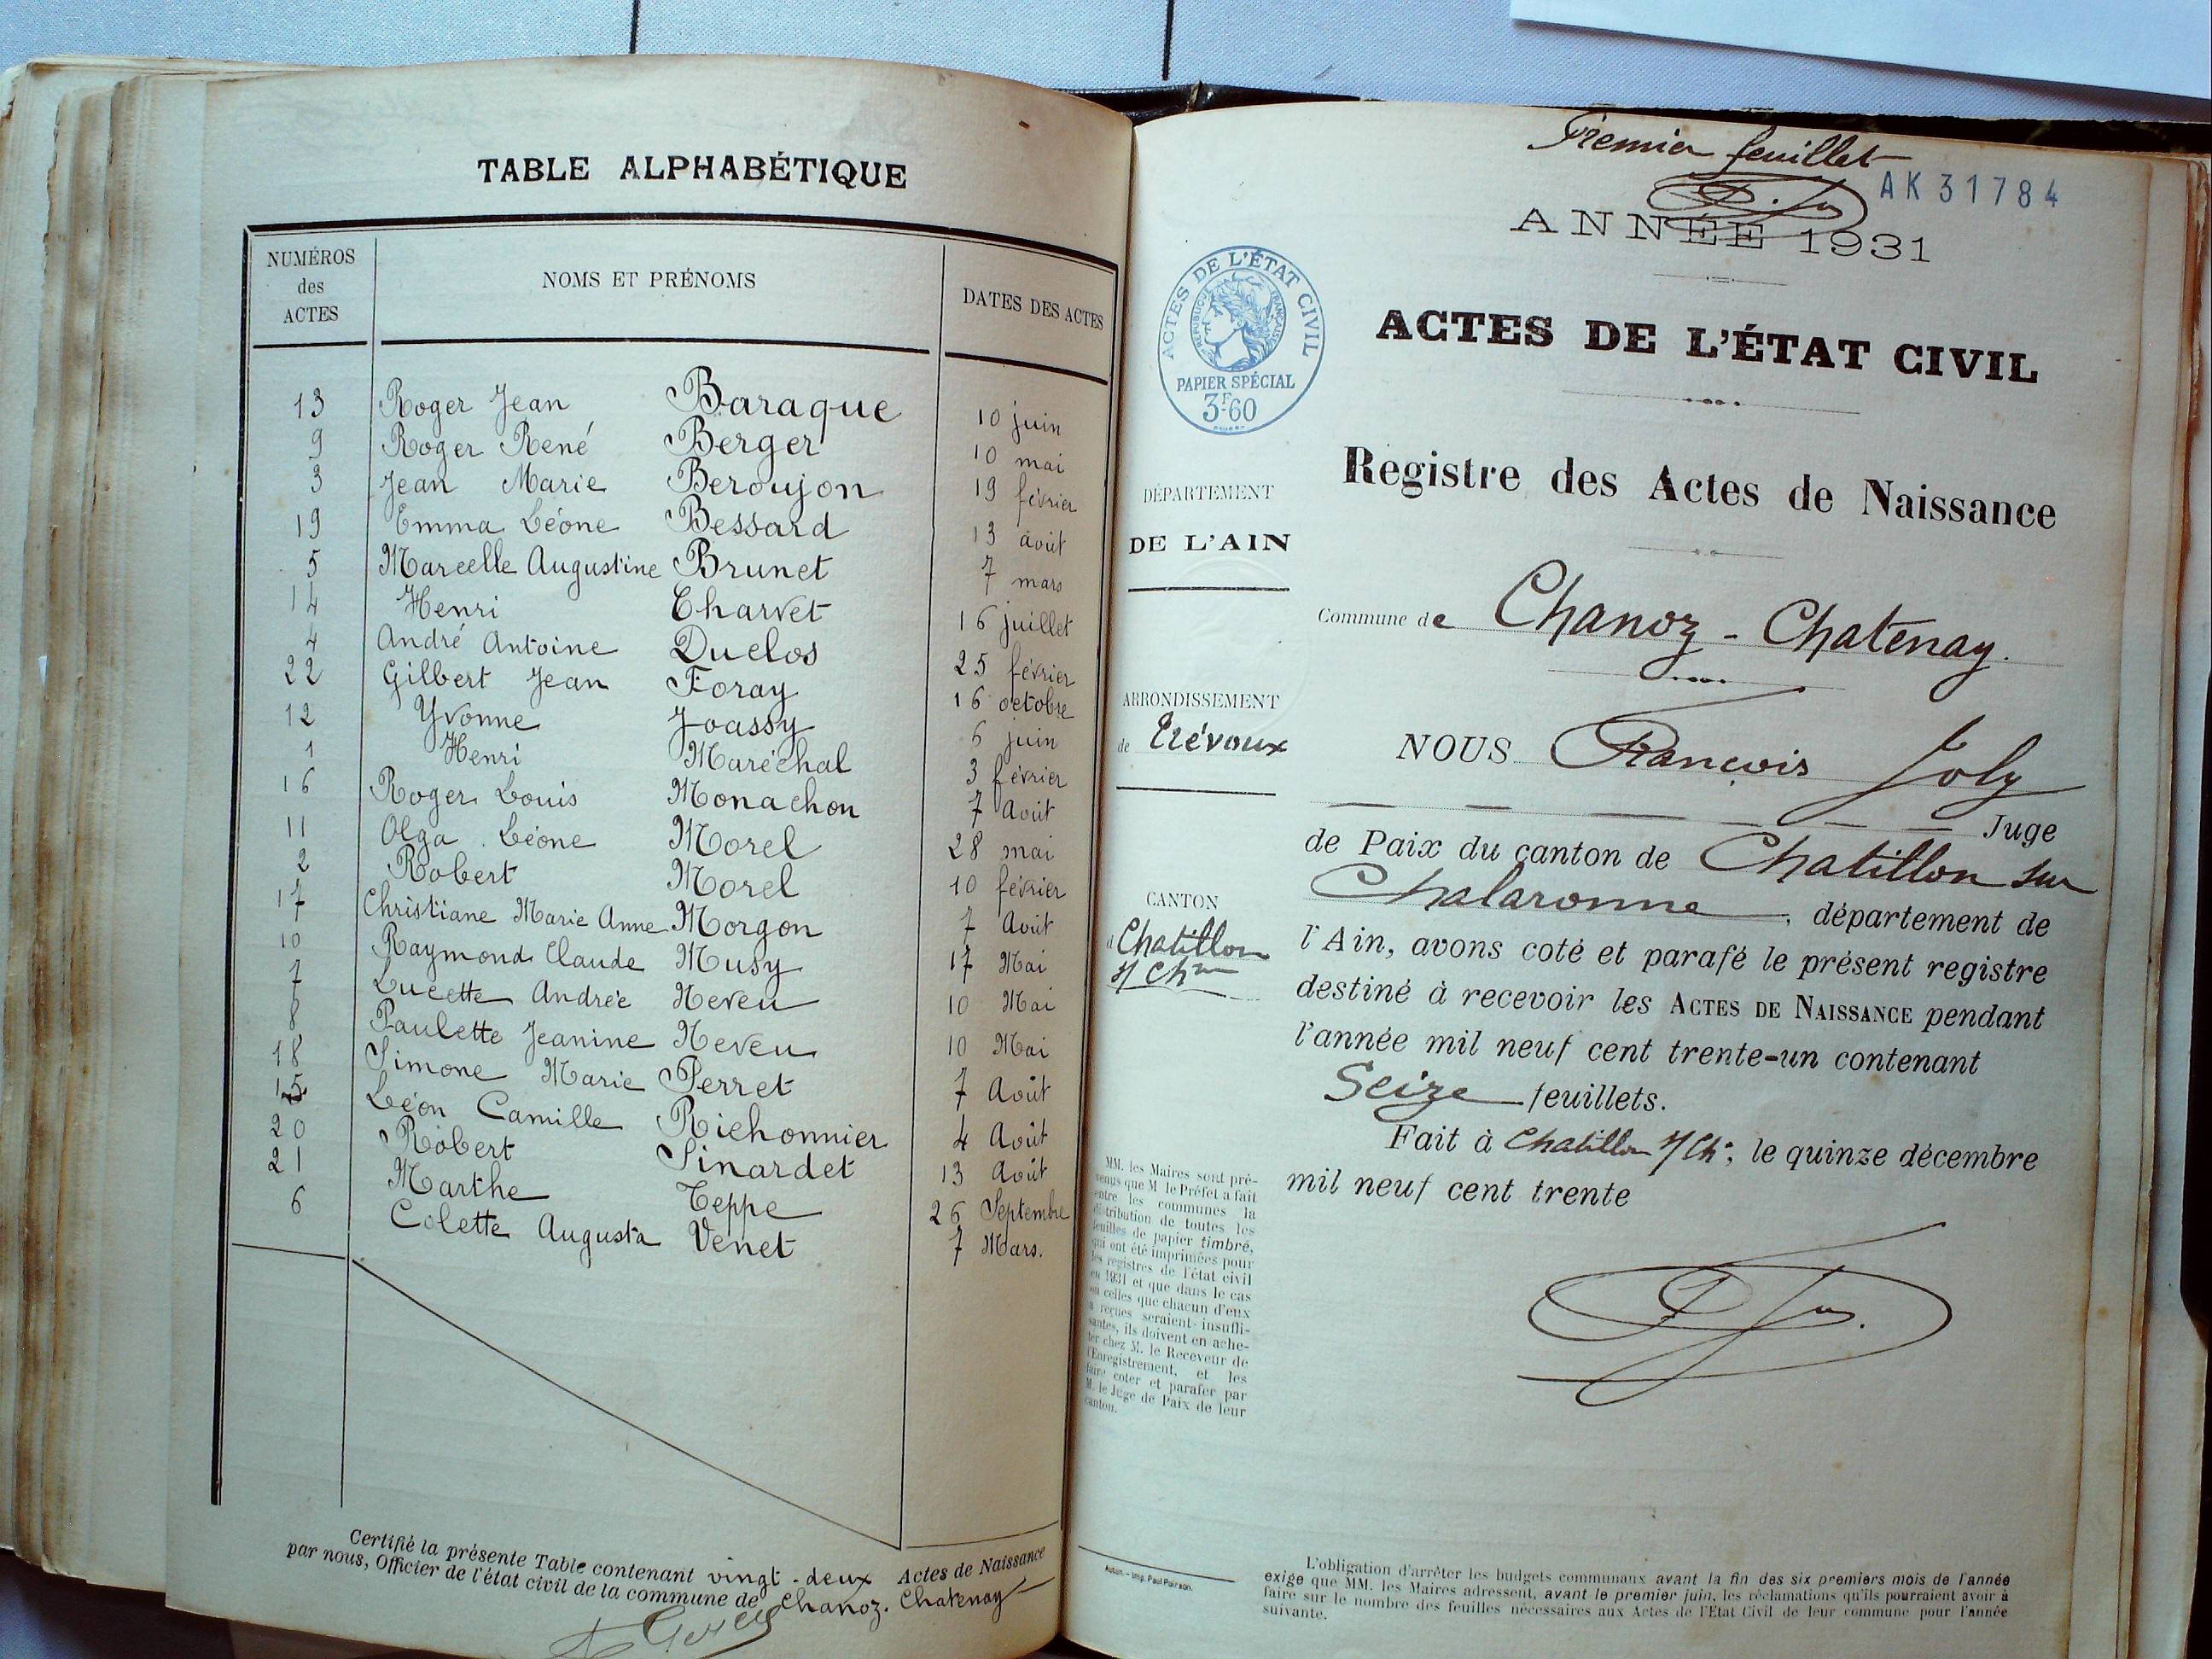 TABLE ALPHABÉTIQUE
NUMÉROS des ACTES NOMS ET PRÉNOMS DATES DES ACTES
13 Roger Jean Baraque 10 juin
9 Roger René Berger 10 mai
3 Jean Marie Beroujon 19 février
19 Emma Léone Bessard 13 août
5 Marcelle Augustine Brunet 7 mars
14 Henri Charvet 16 juillet
4 André Antoine Duclos 25 février
22 Gilbert Jean Foray 16 octobre
12 Yvonne Joassy 6 juin
1 Henri Maréchal 3 février
16 Roger Louis Monachon 7 Août
11 Olga Léone Morel 28 mai
2 Robert Morel 10 février
17 Christiane Marie Anne Morgon 7 Août
10 Raymond Claude Musy 17 Mai
7 Lucette Andrée Neveu 10 Mai
8 Paulette Jeanine Neveu 10 Mai
18 Simone Marie Perret 7 Août
15 Léon Camille Richonnier 4 Août
20 Robert Sinardet 13 Août
21 Marthe Teppe 26 Septembre
6 Colette Augusta Venet 7 Mars.
Certifié la présente Table contenant vingt-deux Actes de Naissance
par nous, Officier de l'état civil de la commune de Chanoz-Chatenay
Premier feuillet
AK31784
ANNÉE 1931
ACTES DE L'ÉTAT CIVIL
RÉPUBLIQUE FRANÇAISE
PAPIER SPÉCIAL
3F60
ACTES DE L'ÉTAT CIVIL
Registre des Actes de Naissance
DÉPARTEMENT
DE L'AIN
Commune de Chanoz-Chatenay.
ARRONDISSEMENT
de Trévoux
NOUS François Joly
Juge
de Paix du canton de Chatillon sur
Chalaronne, département de
CANTON
d Chatillon
s/ Chne
l'Ain, avons coté et parafé le présent registre
destiné à recevoir les ACTES DE NAISSANCE pendant
l'année mil neuf cent trente-un contenant
Seize feuillets.
Fait à Chatillon s/Ch, le quinze décembre
mil neuf cent trente
MM. les Maires sont pré-
venus que M. le Préfet a fait
entre les communes la
distribution de toutes les
feuilles de papier timbré,
qui ont été imprimées pour
les registres de l'état civil
en 1931 et que dans le cas
où celles que chacun d'eux
a reçues seraient insuffi-
santes, ils doivent en ache-
ter chez M. le Receveur de
l'Enregistrement, et les
faire coter et parafer par
M. le Juge de Paix de leur
canton.
Autun. — Imp. Paul Poirson.
L'obligation d'arrêter les budgets communaux avant la fin des six premiers mois de l'année
exige que MM. les Maires adressent, avant le premier juin, les réclamations qu'ils pourraient avoir à
faire sur le nombre des feuilles nécessaires aux Actes de l'Etat Civil de leur commune pour l'année
suivante.